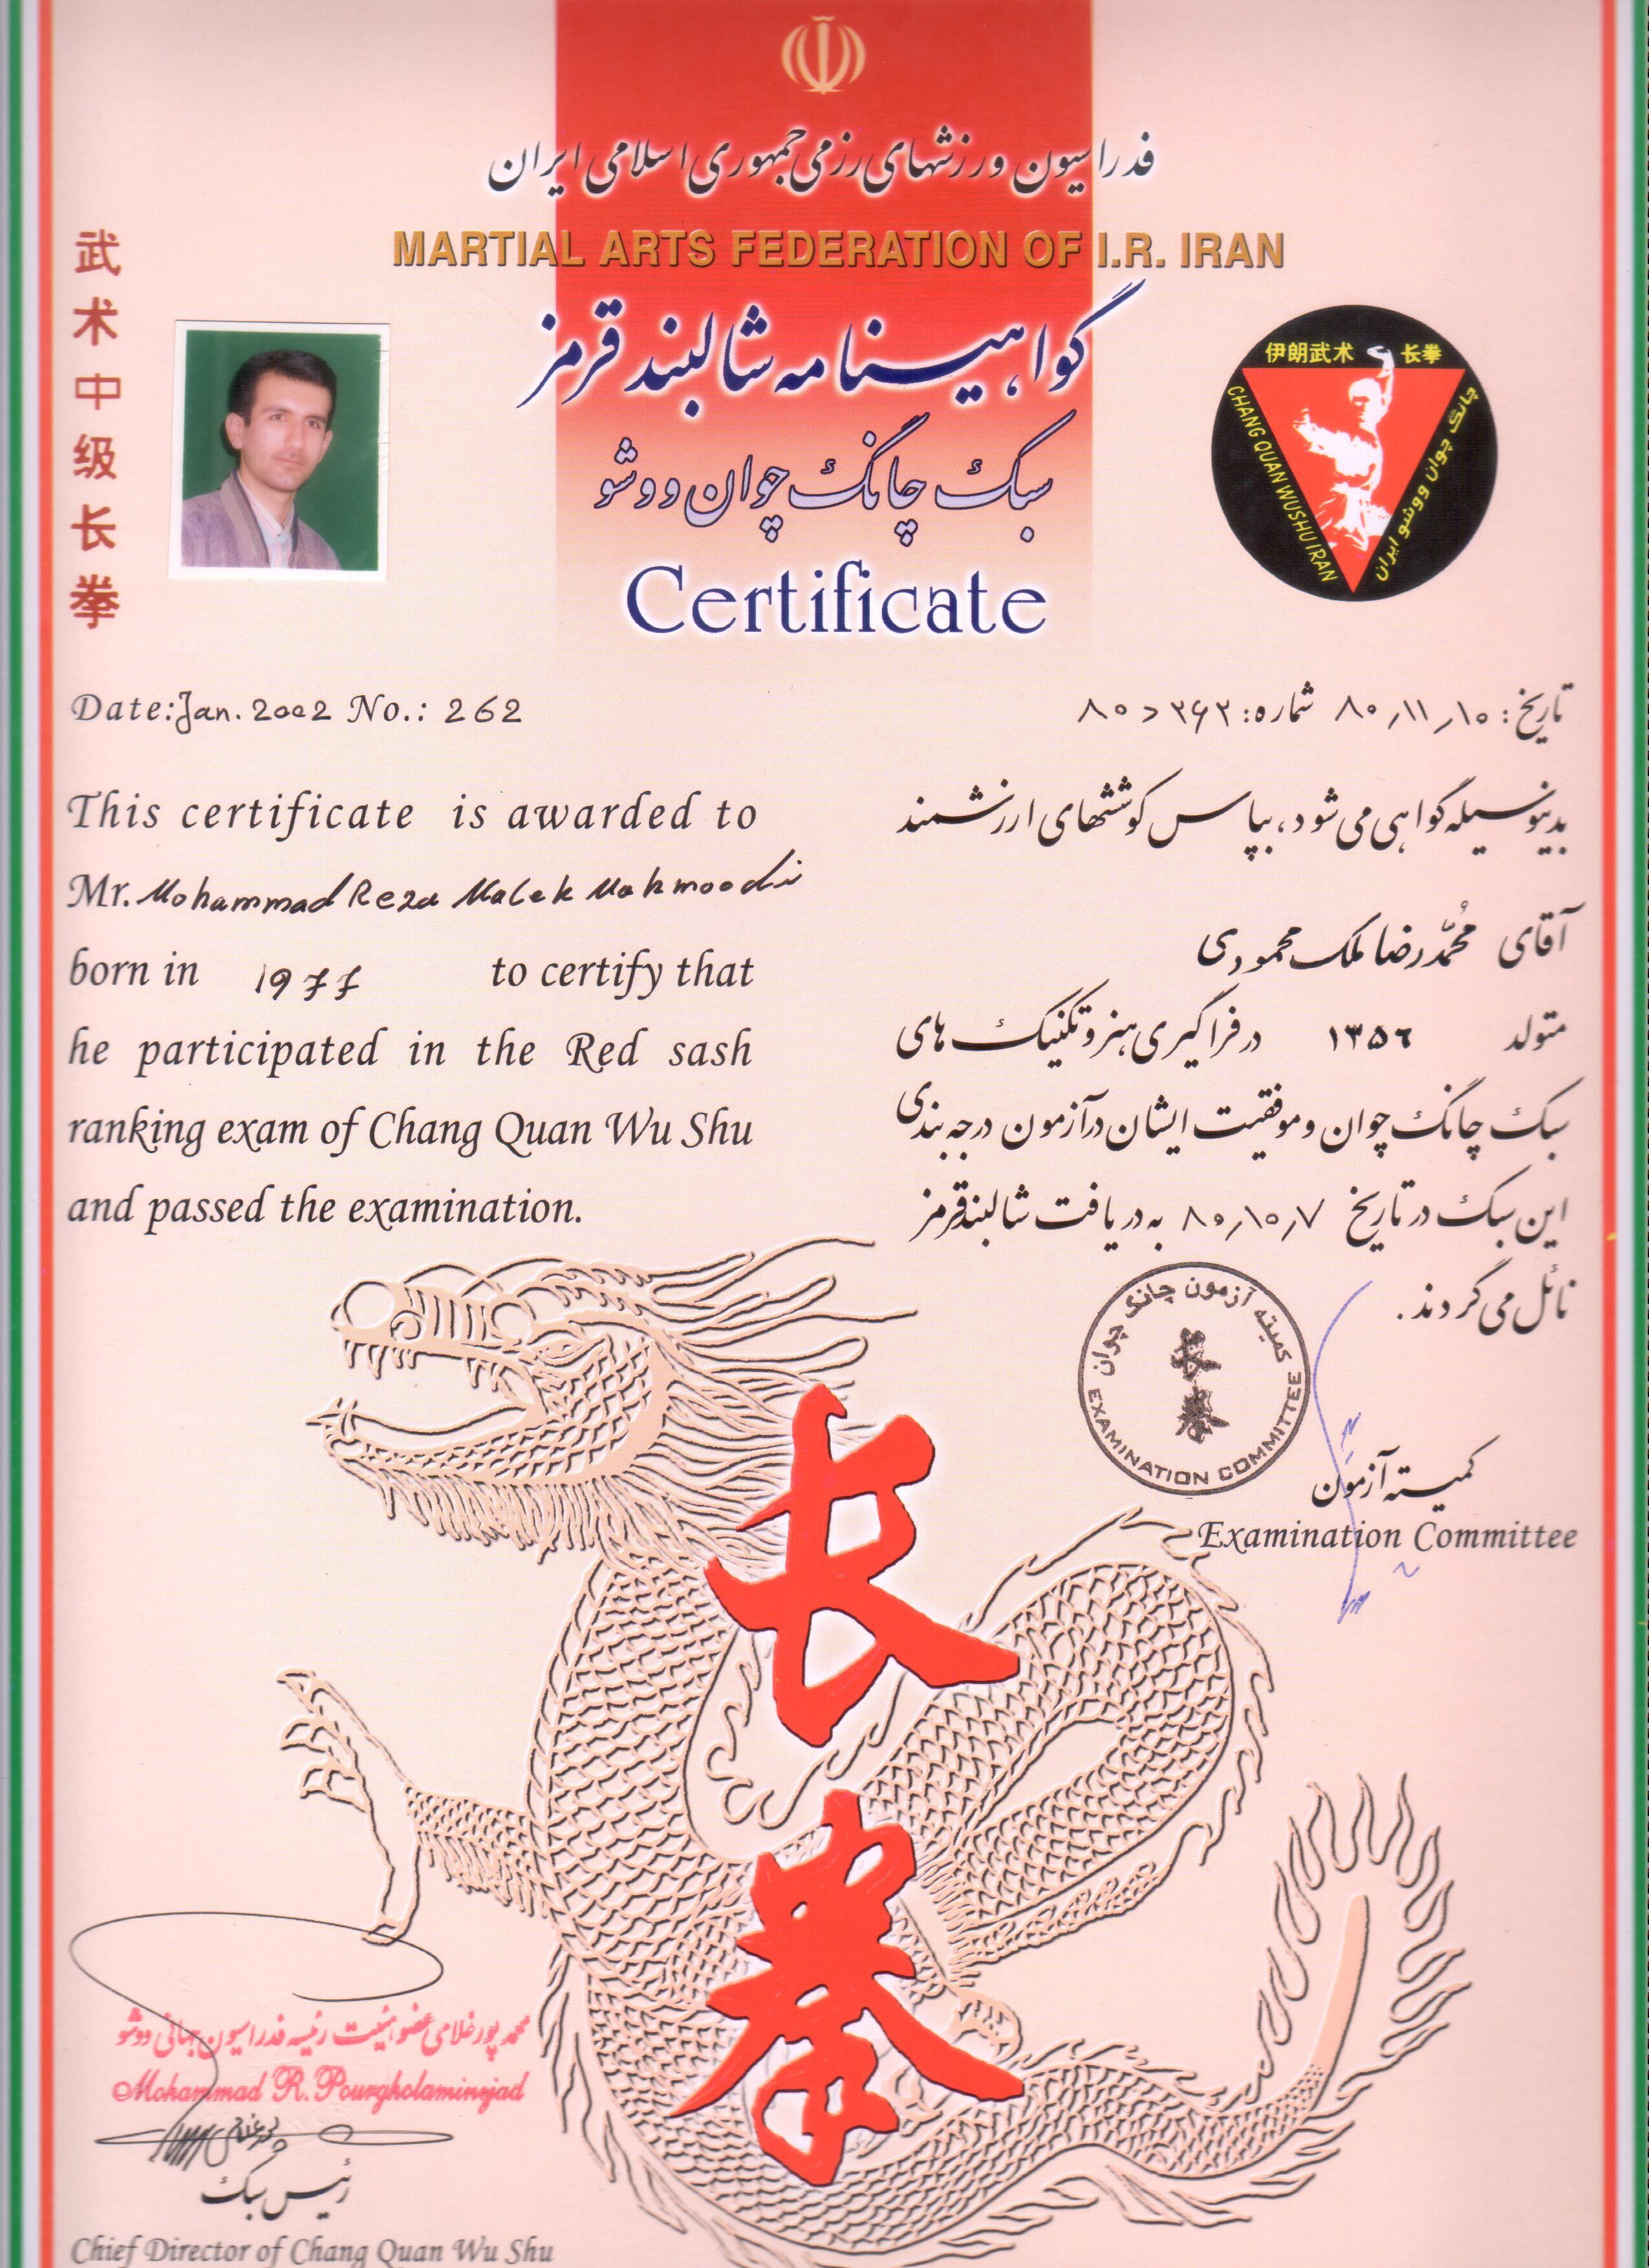 فدراسیون ورزشهای رزمی جمهوری اسلامی ایران
MARTIAL ARTS FEDERATION OF I.R. IRAN
گواهینامه شالبند قرمز
سبک چانگ چوان ووشو
Certificate
武术中级长拳
伊朗武术 长拳
CHANG QUAN WUSHU IRAN
چانگ چوان ووشو ایران
Date: Jan. 2002 No.: 262
This certificate is awarded to
Mr. Mohammad Reza Malek Mahmoodi
born in 1977 to certify that
he participated in the Red sash
ranking exam of Chang Quan Wu Shu
and passed the examination.
تاریخ: ۸۰/۱۱/۱۰ شماره: ۲۶۲ د ۸۰
بدینوسیله گواهی می شود، بپاس کوششهای ارزشمند
آقای محمدرضا ملک محمودی
متولد ۱۳۵۶ در فراگیری هنر و تکنیک های
سبک چانگ چوان و موفقیت ایشان در آزمون درجه بندی
این سبک در تاریخ ۸۰/۱۰/۷ به دریافت شالبند قرمز
نائل می گردند.
کمیته آزمون چانگ چوان
长拳
EXAMINATION COMMITTEE
کمیته آزمون
Examination Committee
长拳
محمد پورغلامی عضو هیئت رئیسه فدراسیون جهانی ووشو
Mohammad R. Pourgholaminejad
رئیس سبک
Chief Director of Chang Quan Wu Shu